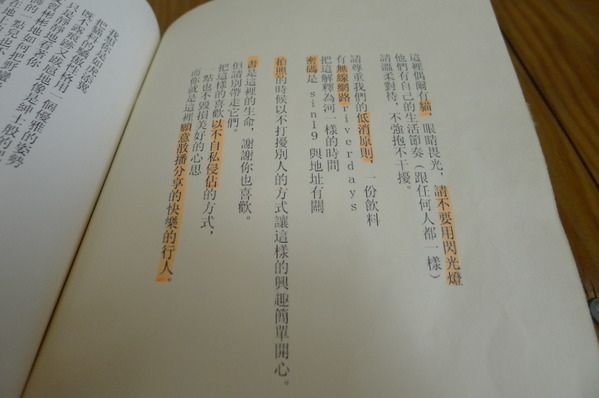 這裡偶爾有貓，眼睛畏光，請不要用閃光燈
他們有自己的生活節奏（跟任何人都一樣）
請溫柔對待，不強抱不干擾。
請尊重我們的低消原則，一份飲料
有無線網路 riverdays
把這解釋為河一樣的時間
密碼是 sin19 與地址有關
拍照的時候以不打擾別人的方式讓這樣的興趣簡單開心。
書是這裡的生命，謝謝你也喜歡。
但請別帶走它們。
把這樣的喜歡以不自私侵佔的方式，
一點也不毀損美好的心思
而你就是這裡願意散播分享的快樂的行人。
一個優雅的姿勢
像是紳士一般的